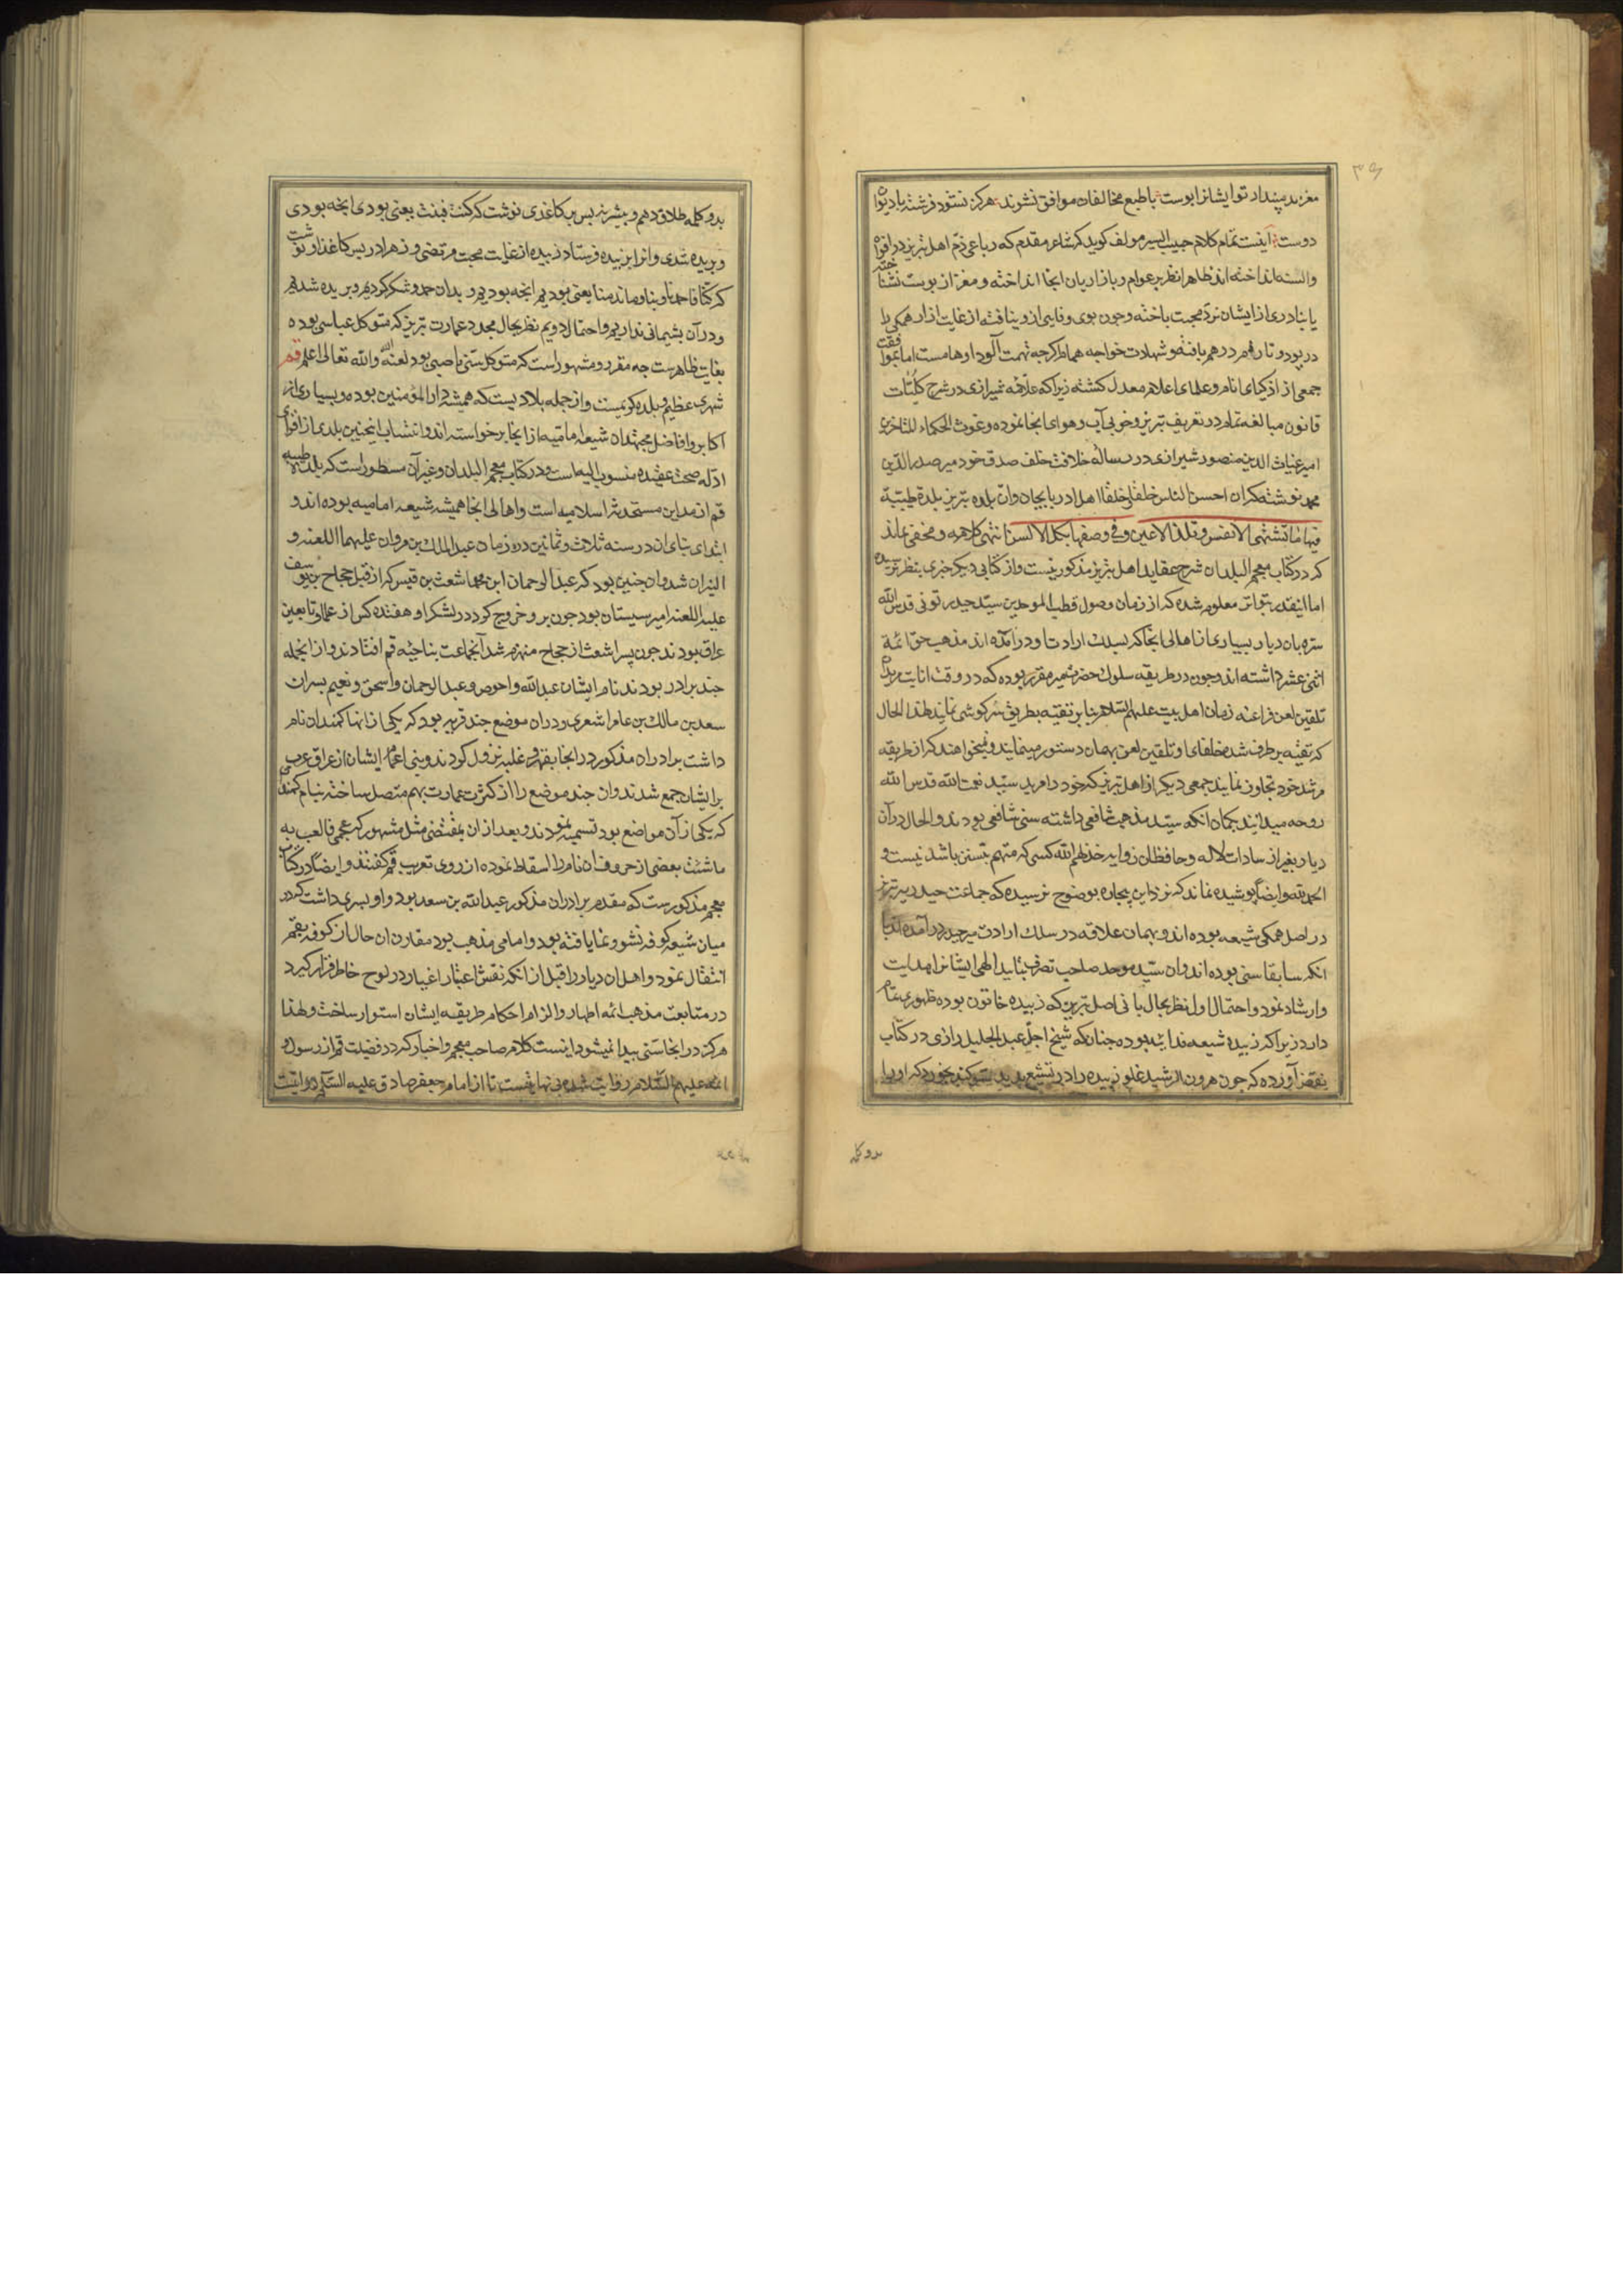 مغزند مپندار تو ایشانرا بوست با طبع مخالفان موافق نشوند هرکز نشود فرشته با دیو
دوست اینست تمام کلام حبیب السیر مولف کوید که شاعر مقدم که رباعی ذم اهل تبریز در افواه
والسنه انداخته اند ظاهرا نظر بر عوام و بازاریان انجا انداخته و مغز از بوست نشناخته
یا بنا دری از ایشان نرد محبت باخته وجون بوی وفایی از و نیافته از غایت ازار همکی را
در بود و تار هم درهم بافته و شهادت خواجه همام اکرجه تهمت الود اوهامست اما بموافقت
جمعی از اذکیای انام و علمای اعلام معدل کشته زیرا که علامه شیرازی در شرح کلیات
قانون مبالغه تمام در تعریف تبریز و خوبی آب وهوای انجا نموده وغوث الحکماء المتاخرین
امیر غیاث الدین منصور شیرازی در رساله خلافت خلف صدق خود میر صدر الدین
محمد نوشته که ان احسن الناس خلقا و خلقا اهل اذربایجان وان بلده تبریز بلدة طیبة
فیها ما تشتهی الانفس و تلذ الاعین و فی وصفها یکل الالسن انتهی کلامه و مخفی نماند
که در کتاب معجم البلدان شرح عقاید اهل تبریز مذکور نیست و از کتابی دیکر خبری بنظر نرسیده
اما اینقدر بتواتر معلوم شده که از زمان وصول قطب الموحدین سید حیدر تونی قدس الله
سره بان دیار بسیاری از اهالی انجا که بسلک ارادت او درامده اند مذهب حق ائمه
اثنی عشر داشته اند وجون در طریقه سلوک حضرت میر مقرر بوده که در وقت انابت مریدان
تلقین لعن فراعنه زمان اهل بیت علیهم السلام بنابر تقیه بطریق سرکوشی نمایند لهذا الحال
که تقیه بر طرف شده خلفای او تلقین لعن بهمان دستور مینمایند و نمیخواهند که از طریقه
مرشد خود تجاوز نمایند جمعی دیکر از اهل تبریز که خود را مرید سید نعمت الله قدس الله
روحه میدانند بکمان انکه سید مذهب شافعی داشته سنی شافعی بودند و الحال در آن
دیار بغیر از سادات لاله و حافظان زوایه خذلهم الله کسی که متهم بتسنن باشد نیست و
الحمد لله و ایضا پوشیده نماند که نزد این بیجاره بوضوح نرسیده که جماعت حیدریه تبریز
در اصل همکی شیعه بوده اند و بهمان علاقه در سلک ارادت میر حیدر درآمده اند یا
انکه سابقا سنی بوده اند وان سید موحد صاحب تصرف بتایید الهی ایشانرا هدایت
وارشاد نمود و احتمال اول نظر بحال بانی اصل تبریز که زبیده خاتون بوده ظهوری تمام
دارد زیرا که زبیده شیعه فدائیه بوده جنانکه شیخ اجل عبد الجلیل رازی در کتاب
نقض آورده که جون هرون الرشید غلو زبیده را در تشیع بدید سوکند بخورد که او را
بدو کلمه
بدو کلمه طلاق دهم و بیشر نه بس بر کاغذی نوشت که کنت فبنت یعنی بودی انجه بودی
و بریده شدی وانرا بزبیده فرستاد زبیده از غایت محبت مرتضی و زهرا در بس کاغذ او نوشت
که کنا فما حمدنا وبنا و ما ندمنا یعنی بودیم انجه بودیم و بدان حمد و شکر نکردیم و بریده شدیم
و در آن بشیمانی نداریم و احتمال دویم نظر بحال مجدد عمارت تبریز که متوکل عباسی بوده
بغایت ظاهرست جه مقرر و مشهور است که متوکل سنی ناصبی بود لعنه الله والله تعالی اعلم قم
شهری عظیم و بلده کریمیست و از جمله بلادیست که همیشه دار المؤمنین بوده و بسیاری از
اکابر و افاضل مجتهدان شیعه امامیه از انجا برخواسته اند و انتساب اینچنین بلدی از اقوای
ادله صحت عقیده منسوب الیه است و در کتاب معجم البلدان و غیر آن مسطور است که بلده طیبه
قم از مداین مستحدثه اسلامیه است و اهالی انجا همیشه شیعه امامیه بوده اند و
ابتدای بنای ان در سنه ثلاث و ثمانین در زمان عبد الملک بن مروان علیهما اللعنه و
النیران شد وان جنین بود که عبد الرحمان ابن محمد اشعث بن قیس که از قبل حجاج بن یوسف
علیه اللعنه امیر سیستان بود جون برو خروج کرد در لشکر او هفده کس از علمای تابعین
عراق بودند جون پسر اشعث از حجاج منهزم شد آنجماعت بناحیه قم افتادند و از انجمله
جند برادر بودند نام ایشان عبد الله و احوص و عبد الرحمان و اسحق و نعیم بسران
سعد بن مالک بن عامر اشعری و دران موضع جند قریه بود که یکی از انها کمندان نام
داشت برادران مذکور در انجا بقهر و غلبه نزول کردند و بنی اعمام ایشان از عراق عرب
بر ایشان جمع شدند وان جند موضع را از کثرت عمارت بهم متصل ساخته بنام کمندان
که یکی از آن مواضع بود تسمیه نمودند و بعد از ان بمقتضی مثل مشهور که عجمی فالعب به
ما شئت بعضی از حروف ان نام را اسقاط نموده از روی تعریب قم کفتند و ایضا در کتاب
معجم مذکورست که مقدم برادران مذکور عبد الله بن سعد بود و او بسری داشت که در
میان شیعه کوفه نشو و نما یافته بود و امامی مذهب بود مقارن ان حال از کوفه بقم
انتقال نمود و اهل ان دیار را قبل از انکه نقش اعتبار اغیار در لوح خاطر قرار کیرد
در متابعت مذهب ائمه اطهار و الزام احکام طریقه ایشان استوار ساخت و لهذا
هرکز در انجا سنی بیدا نمیشود اینست کلام صاحب معجم و اخبار که در فضیلت قم از رسول و
ائمه علیهم السلام روایت شده بی نهایتست تا از امام جعفر صادق علیه السلام روایتست